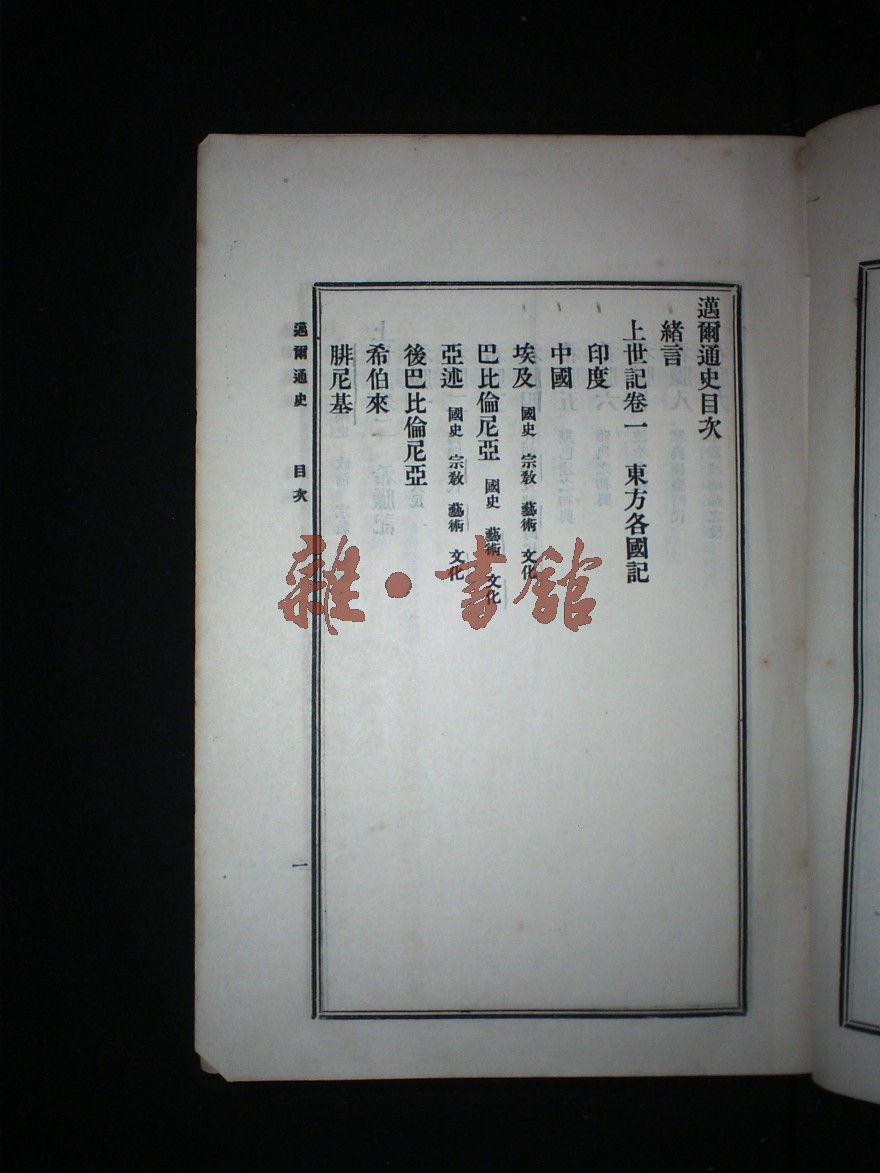 邁爾通史目次
緒言
上世記卷一　東方各國記
印度
中國
埃及　國史　宗教　藝術　文化
巴比倫尼亞　國史　藝術　文化
亞述　國史　宗教　藝術　文化
後巴比倫尼亞
希伯來
腓尼基
邁爾通史　目次
一
雜·書館